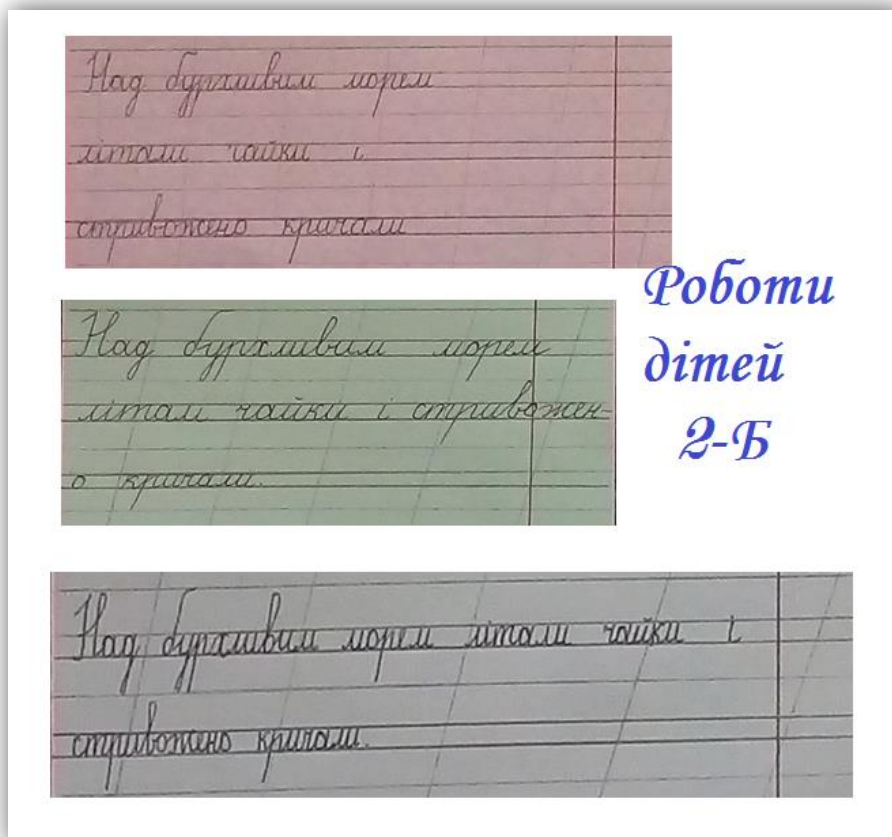 Над бурхливим морем
літали чайки і
стривожено кричали
Роботи
дітей
2-Б
Над бурхливим морем
літали чайки і стривожен-
о кричали.
Над бурхливим морем літали чайки і
стривожено кричали.